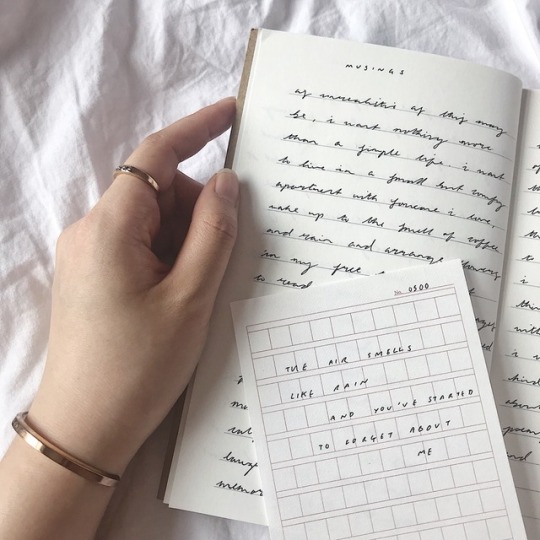 MUSINGS
as unrealistic as this may
be, i want nothing more
than a simple life. i want
to live in a small but comfy
apartment with someone i love,
wake up to the smell of coffee
and rain and arrange flowers
in my free
to read
No. 0500
THE AIR SMELLS
LIKE RAIN
AND YOU'VE STARTED
TO FORGET ABOUT
ME